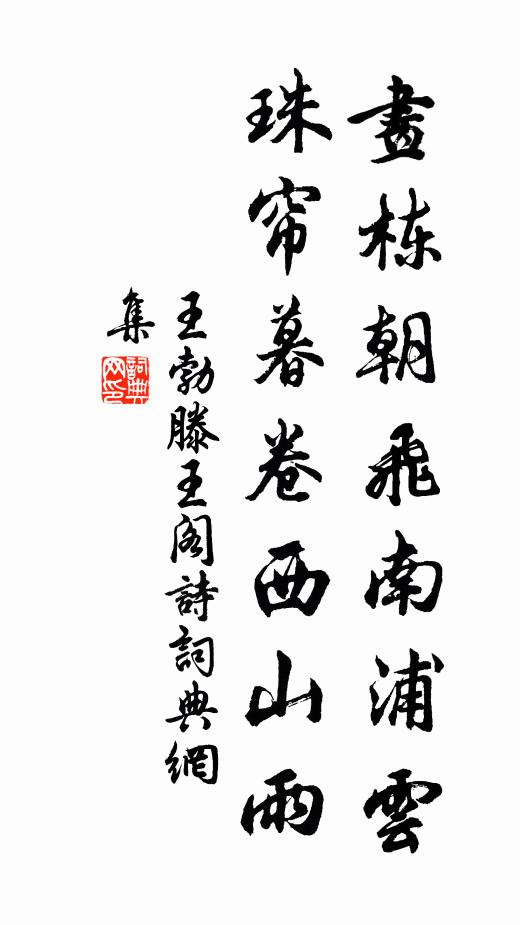 畫栋朝飛南浦雲
珠帘暮卷西山雨
王勃滕王阁詩詞典網
集
詞典
网印